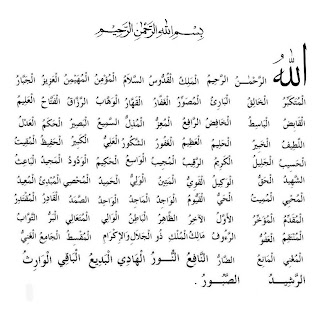 بِسْمِ اللهِ الرَّحْمٰنِ الرَّحِيْمِ
اللهُ الرَّحْمٰنُ الرَّحِيمُ المَلِكُ القُدُّوسُ السَّلاَمُ المُؤْمِنُ المُهَيْمِنُ العَزِيزُ الجَبَّارُ
المُتَكَبِّرُ الخَالِقُ البَارِئُ المُصَوِّرُ الغَفَّارُ القَهَّارُ الوَهَّابُ الرَّزَّاقُ الفَتَّاحُ العَلِيمُ
القَابِضُ البَاسِطُ الخَافِضُ الرَّافِعُ المُعِزُّ المُذِلُّ السَّمِيعُ البَصِيرُ الحَكَمُ العَدْلُ
اللَّطِيفُ الخَبِيرُ الحَلِيمُ العَظِيمُ الغَفُورُ الشَّكُورُ العَلِيُّ الكَبِيرُ الحَفِيظُ المُقِيتُ
الحَسِيبُ الجَلِيلُ الكَرِيمُ الرَّقِيبُ المُجِيبُ الوَاسِعُ الحَكِيمُ الوَدُودُ المَجِيدُ البَاعِثُ
الشَّهِيدُ الحَقُّ الوَكِيلُ القَوِيُّ المَتِينُ الوَلِيُّ الحَمِيدُ المُحْصِي المُبْدِئُ المُعِيدُ
المُحْيِي المُمِيتُ الحَيُّ القَيُّومُ الوَاجِدُ المَاجِدُ الوَاحِدُ الصَّمَدُ القَادِرُ المُقْتَدِرُ
المُقَدِّمُ المُؤَخِّرُ الأَوَّلُ الآخِرُ الظَّاهِرُ البَاطِنُ الوَالِي المُتَعَالِي البَرُّ التَّوَّابُ
المُنْتَقِمُ العَفُوُّ الرَّءُوفُ مَالِكُ المُلْكِ ذُو الجَلاَلِ وَالإِكْرَامِ المُقْسِطُ الجَامِعُ الغَنِيُّ
المُغْنِي المَانِعُ الضَّارُّ النَّافِعُ النُّورُ الهَادِي البَدِيعُ البَاقِي الوَارِثُ
الرَّشِيدُ الصَّبُورُ .